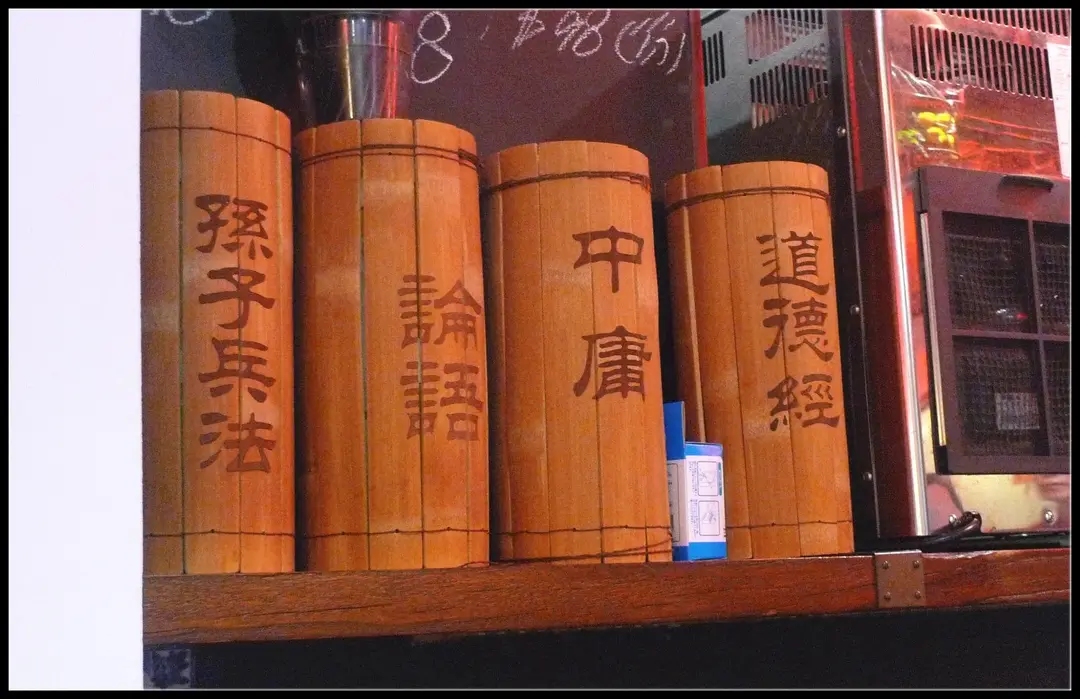 8, $98(份)
孫子兵法
論語
中庸
道德經